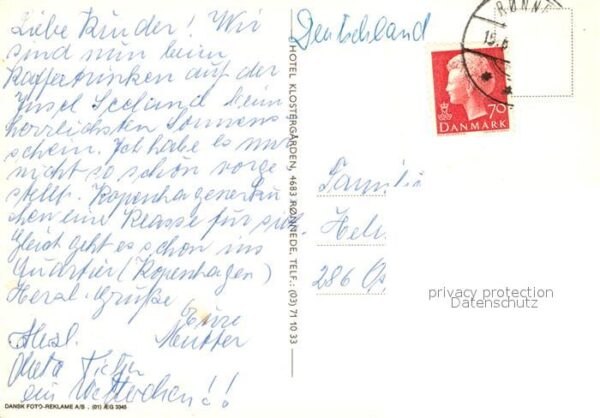 Liebe Kinder! Wir
sind nun beim
Kaffeetrinken auf der
Insel Seeland beim
herrlichsten Sonnen
schein. Ich habe es mir
nicht so schön vorge
stellt. Kopenhagen
eine Klasse für
Gleich geht es schon ins
Quartier (Kopenhagen)
Herzl. Grüße
Eure
Mutter
Herzl.
ein
DANSK FOTO-REKLAME A/S . (01) ÆG 3945
HOTEL KLOSTERGÅRDEN, 4683 RØNNEDE. TELF.: (03) 71 10 33
Deutschland
RØNNE
19.6
70
DANMARK
Familie
Hel
286
privacy protection
Datenschutz